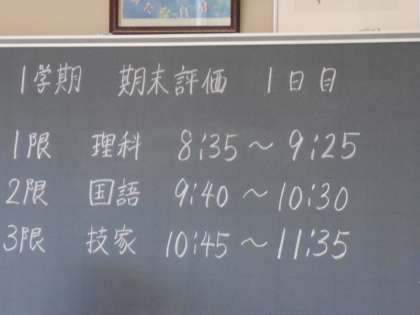 1学期 期末評価 1日目
1限 理科 8:35～9:25
2限 国語 9:40～10:30
3限 技家 10:45～11:35